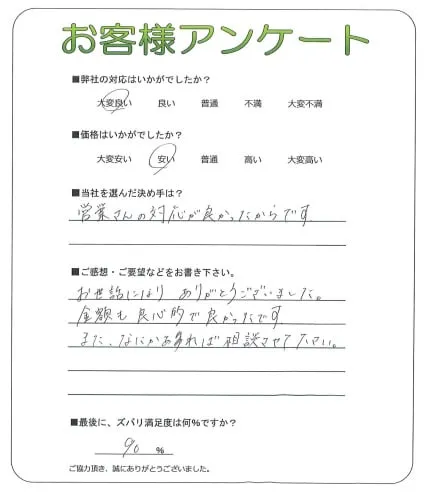 お客様アンケート
■弊社の対応はいかがでしたか?
大変良い 良い 普通 不満 大変不満
■価格はいかがでしたか?
大変安い 安い 普通 高い 大変高い
■当社を選んだ決め手は?
営業さんの対応が良かったからです
■ご感想・ご要望などをお書き下さい。
お世話になり ありがとうございました。
金額も良心的で良かったです
また、なにかあれば相談させて下さい。
■最後に、ズバリ満足度は何%ですか?
90 %
ご協力頂き、誠にありがとうございました。